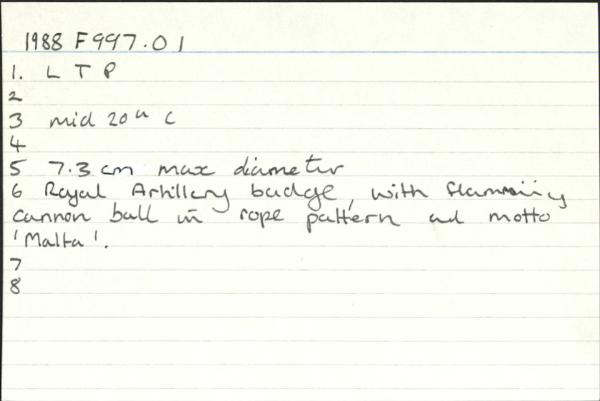 1988 F997.01
1. L T P
2
3 mid 20th C
4
5 7.3 cm max diameter
6 Royal Artillery badge, with flamming
cannon ball in rope pattern and motto
'Malta'.
7
8